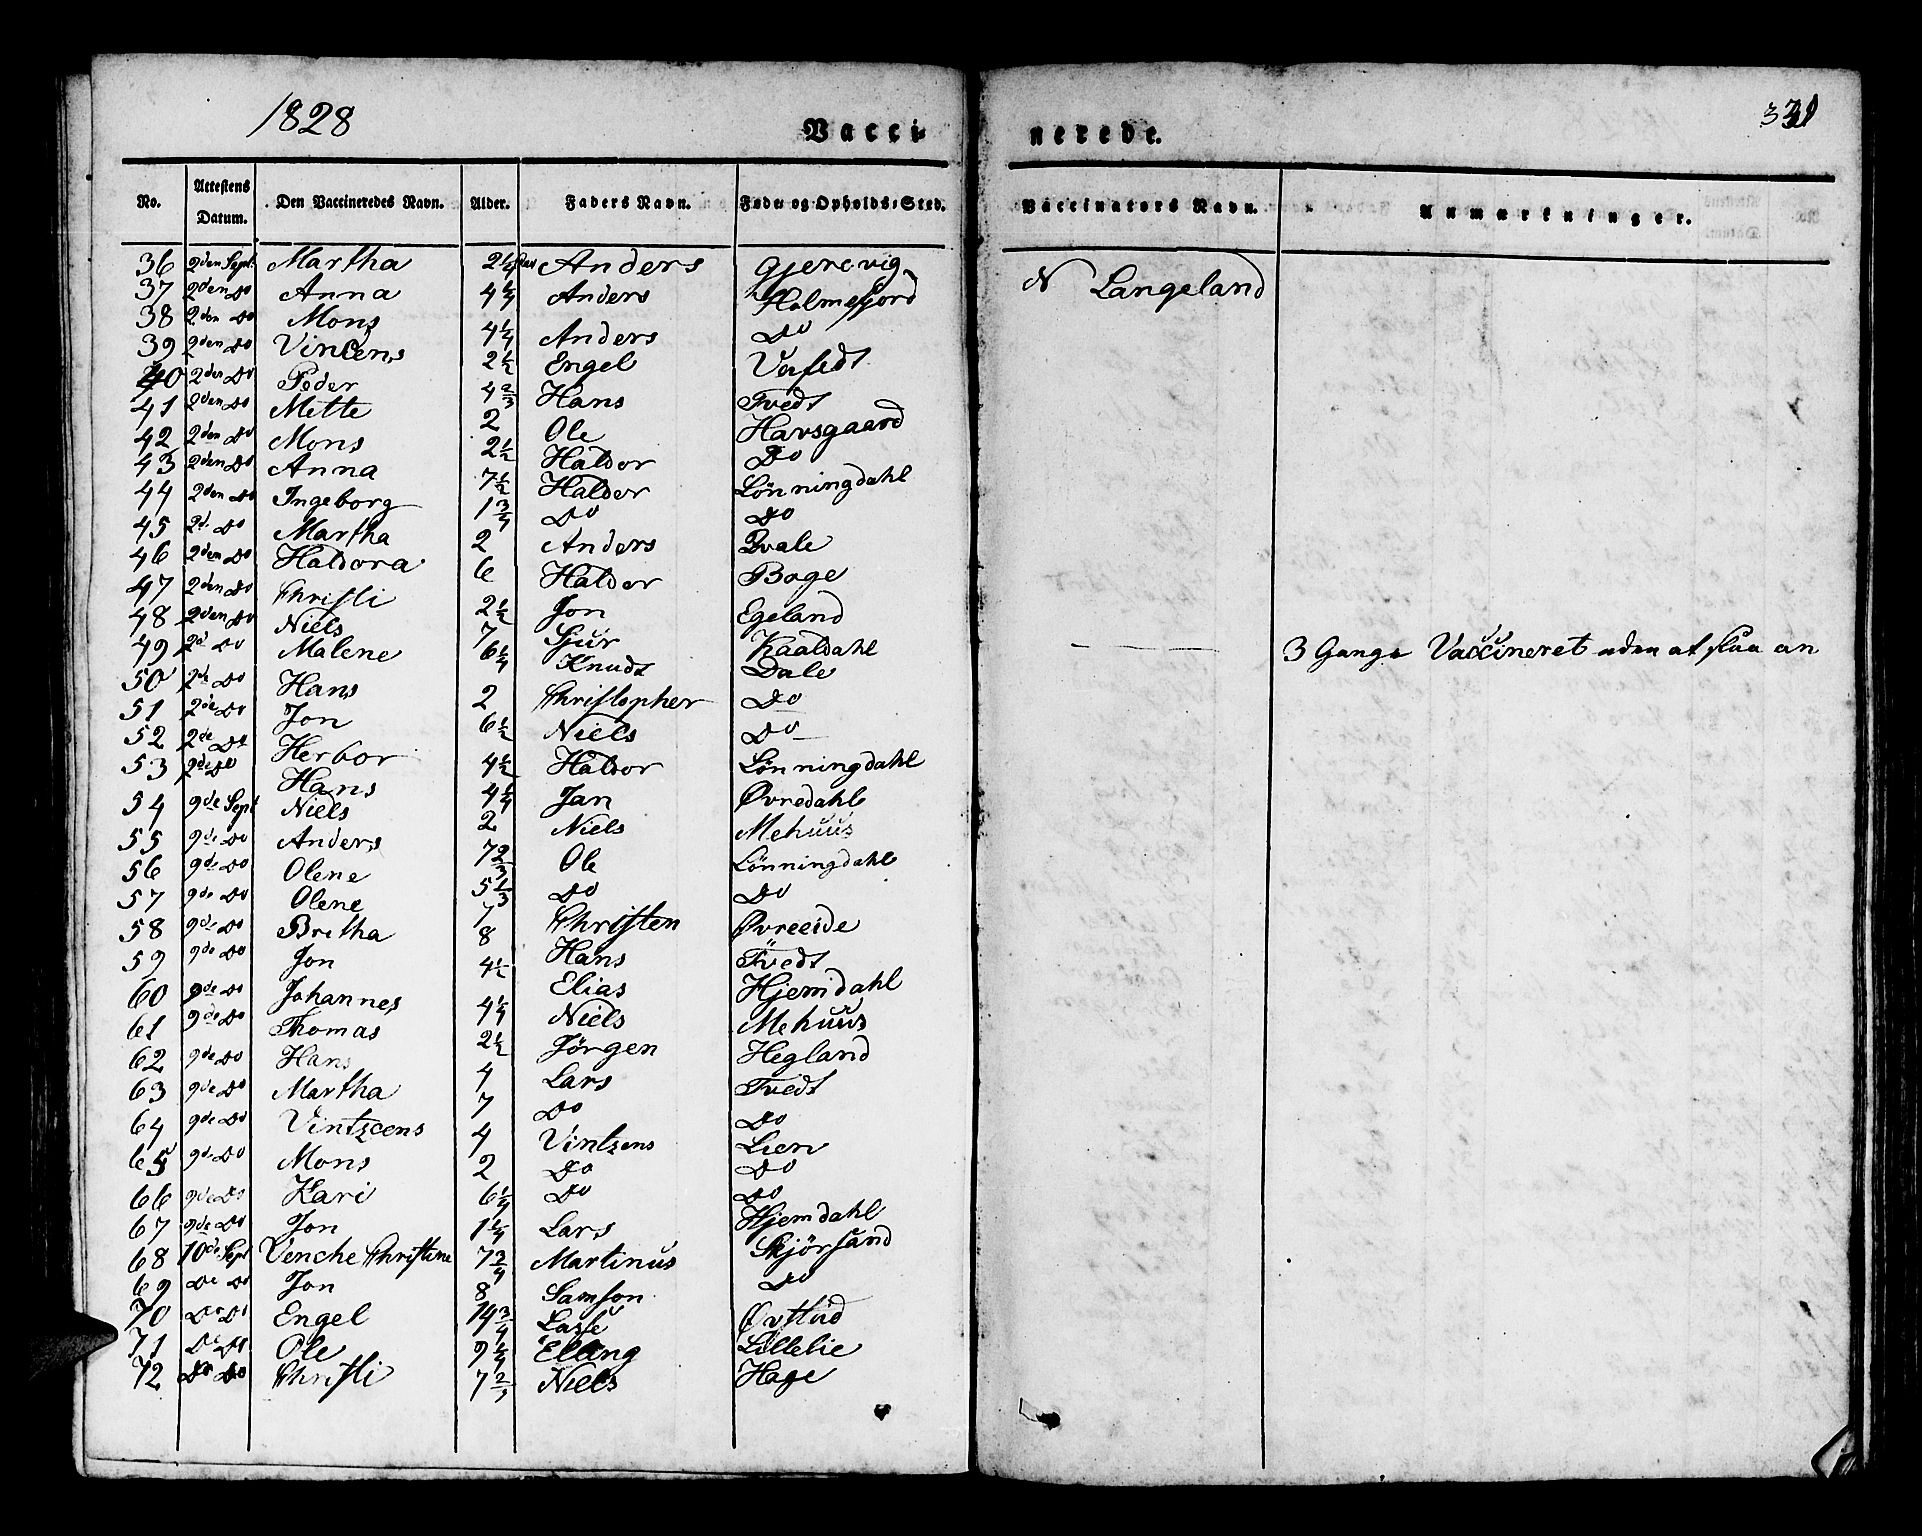 1828 Vacci- nerede. 331
No. Attestens Datum. Den Vaccineredes Navn. Alder. Faders Navn. Føde- og Opholds-Sted. Vaccinators Navn. Anmærkninger.
36 2den Sept. Martha 2 1/4 Anders Gjerevig N Langeland
37 2den Do Anna 4 1/4 Anders Holmefjord
38 2den Do Mons 4 1/4 Anders Do
39 2den Do Vincens 2 1/2 Engel
40 2den Do Peder 4 2/3 Hans Tvedt
41 2den Do Mette 2 Ole Havsgaard
42 2den Do Mons 2 1/2 Haldor Do
43 2den Do Anna 7 1/2 Haldor Lönningdahl
44 2den Do Ingeborg 1 3/4 Do Do
45 2d. Do Martha 2 Anders Qvale
46 2den Do Haldora 6 Haldor Boge
47 2den Do Christi 2 1/2 Jon Egeland
48 2den Do Niels 7 Sjur Kaaldahl
49 2d Do Malene 6 1/4 Knudt Dale 3 Gange Vaccineret uden at slaa an
50 2de Do Hans 2 Christopher Do
51 2de Do Jon 6 1/2 Niels Do
52 2de Do Herbor 4 1/2 Haldor Lönningdahl
53 2de Do Hans 4 1/4 Jan Øvredahl
54 9de Sept Niels 2 Niels Mehuus
55 9de Do Anders 7 2/3 Ole Lönningdahl
56 9de Do Olene 5 1/3 Do Do
57 9de Do Olene 7 Christen Øvreeide
58 9de Do Britha 8 Hans Tvedt
59 9de Do Jon 4 1/2 Elias Hjemdahl
60 9de Do Johannes 4 1/4 Niels Mehuus
61 9de Do Thomas 2 1/2 Jörgen Hegland
62 9de Do Hans 4 Lars Tvedt
63 9de Do Martha 7 Do Do
64 9de Do Vintzcens 4 Vintzens Lien
65 9de Do Mons 2 Do Do
66 9de Do Kari 6 1/4 Do Do
67 9de Do Jon 1 1/4 Lars Hjemdahl
68 10de Sept Venche Christine 7 3/4 Martinus Skjörsand
69 De Do Jon 8 Samson Do
70 De Do Engel 14 3/4 Lasse
71 De Do Ole 9 1/4 Elling Lillelie
72 De Do Christi 7 Niels Hage